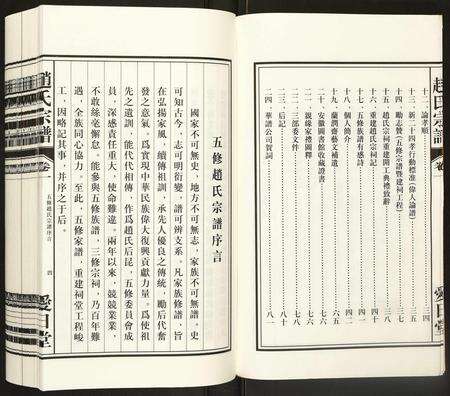 趙氏宗譜 卷一
愛日堂
十二、論孝順 二四
十三、新二十四孝行動標准（偉人論譜） 三五
十四、勵志贊（五修宗譜暨建祠工程） 三七
十五、趙氏宗祠重建開工典禮致辭 三八
十六、重建趙氏宗祠記 四一
十七、五修族譜有感詩 四二
十八、個人簡介 四二
十九、蘭潤齋藝文補遺 六五
二十、安徽圖書館收藏證書 七六
二一、親緣家禮圖釋 七六
二二、三部委文件 七八
二三、后記 八十
二四、華譜公司賀詞 八十
五修趙氏宗譜序言
國家不可無史，地方不可無志，家族不可無譜，史
可知古今，志可明衍變，譜可辨支系。凡家族修譜，旨
在弘揚家風，續傳祖訓，承先人優良之傳統，勵后代奮
發之意氣，爲實現中華民族偉大復興貢獻力量。爲使祖
先之遺訓，能代代相傳，作爲趙氏后昆，五修委員會成
員，深感責任重大，使命難違。兩年以來，競競業業，
不敢絲毫懈怠，能參與五修族譜，三修宗祠，乃百年難
遇，全族同心協力，至此，五修家譜，重建祠堂工程峻
工，因略記其事，并序之于后。
趙氏宗譜 卷一 五修趙氏宗譜序言 四
愛日堂